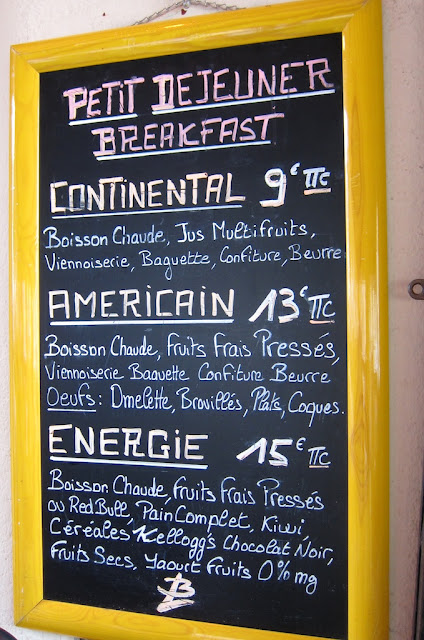 PETIT DEJEUNER
BREAKFAST
CONTINENTAL 9€ TTC
Boisson Chaude, Jus Multifruits,
Viennoiserie, Baguette, Confiture, Beurre
AMERICAIN 13€ TTC
Boisson Chaude, Fruits Frais Pressés,
Viennoiserie Baguette Confiture Beurre
Oeufs: Omelette, Brouillés, Plats, Coques.
ENERGIE 15€ TTC
Boisson Chaude, Fruits Frais Pressés
ou Red Bull, Pain Complet, Kiwi,
Céréales Kellogg's Chocolat Noir,
Fruits Secs, Yaourt Fruits 0% mg
B